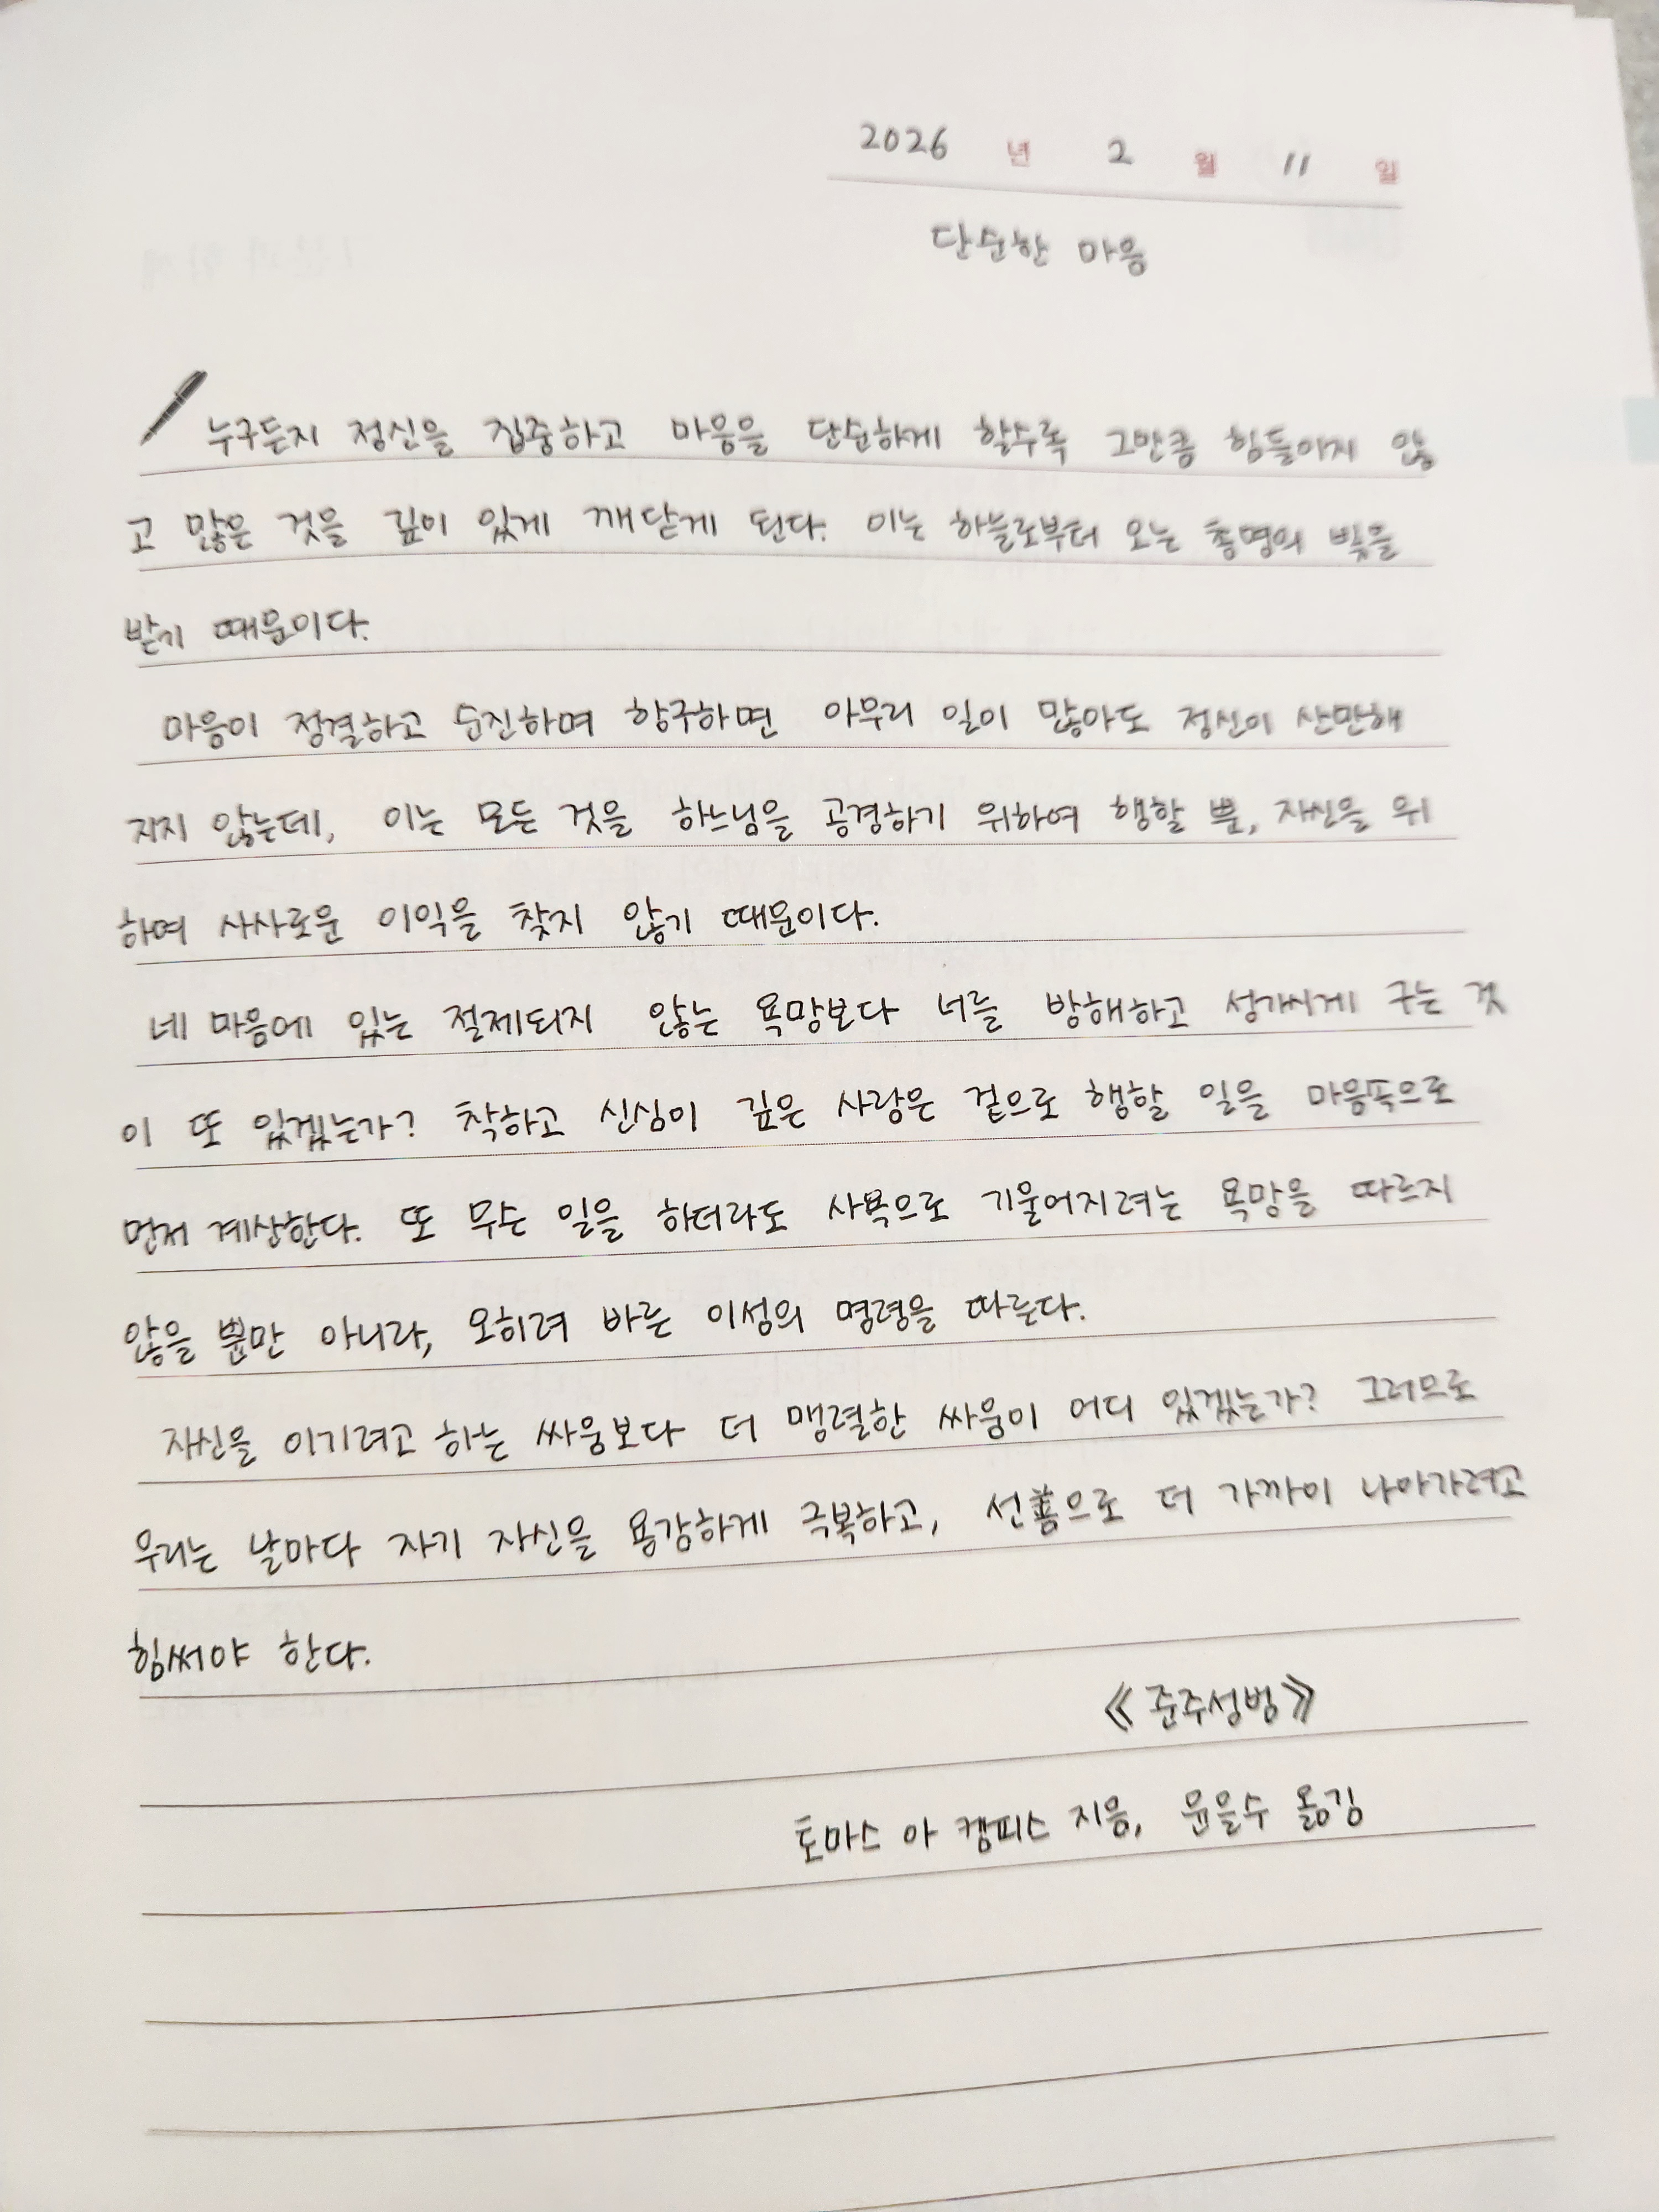 2026 년 2 월 11 일
단순한 마음
누구든지 정신을 집중하고 마음을 단순하게 할수록 그만큼 힘들이지 않
고 많은 것을 깊이 있게 깨닫게 된다. 이는 하늘로부터 오는 총명의 빛을
받기 때문이다.
마음이 정결하고 순진하며 항구하면 아무리 일이 많아도 정신이 산만해
지지 않는데, 이는 모든 것을 하느님을 공경하기 위하여 행할 뿐, 자신을 위
하여 사사로운 이익을 찾지 않기 때문이다.
네 마음에 있는 절제되지 않는 욕망보다 너를 방해하고 성가시게 구는 것
이 또 있겠는가? 착하고 신심이 깊은 사람은 겉으로 행할 일을 마음속으로
먼저 계산한다. 또 무슨 일을 하더라도 사욕으로 기울어지려는 욕망을 따르지
않을 뿐만 아니라, 오히려 바른 이성의 명령을 따른다.
자신을 이기려고 하는 싸움보다 더 맹렬한 싸움이 어디 있겠는가? 그러므로
우리는 날마다 자기 자신을 용감하게 극복하고, 선善으로 더 가까이 나아가려고
힘써야 한다.
《준주성범》
토마스 아 켐피스 지음, 윤을수 옮김